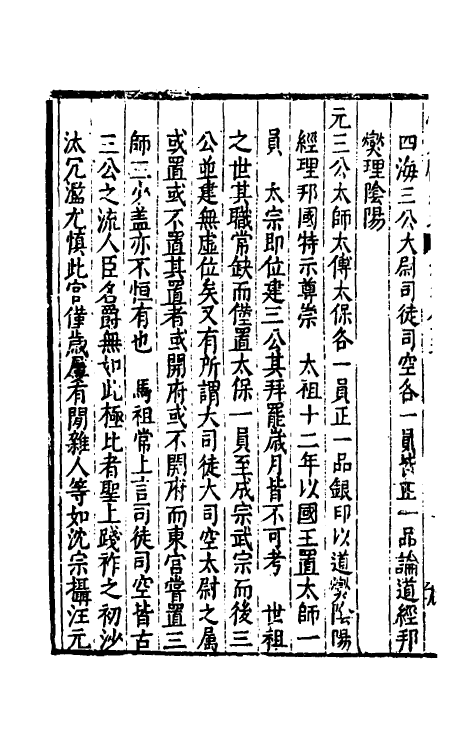 四海三公大尉司徒司空各一員皆正一品論道經邦
爕理陰陽
元三公太師太傅太保各一員正一品銀印以道爕陰陽
經理邦國特示尊崇　太祖十二年以國王置太師一
員　太宗即位建三公其拜罷歲月皆不可考　世祖
之世其職常缺而僅置太保一員至成宗武宗而後三
公並建無虛位矣又有所謂大司徒大司空太尉之属
或置或不置其置者或開府或不開府而東宮嘗置三
師三少盖亦不恒有也　馬祖常上言司徒司空皆古
三公之流人臣名爵無如此極比者聖上踐祚之初沙
汰冗濫尤慎此官僅歲屢有閒雜人等如沈宗攝汪元